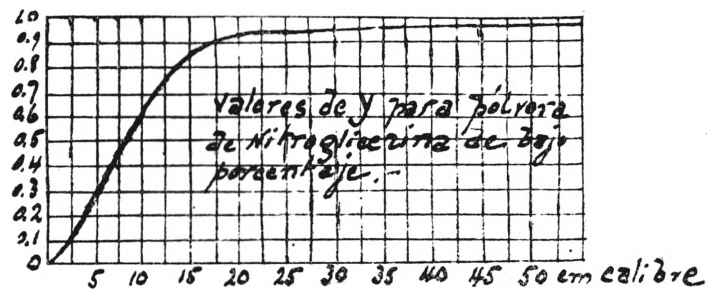 1.0
0.9
0.8
0.7
0.6
0.5
0.4
0.3
0.2
0.1
0
Valores de y para pólvora
de Nitroglicerina de bajo
porcentaje.-
5 10 15 20 25 30 35 40 45 50 cm calibre